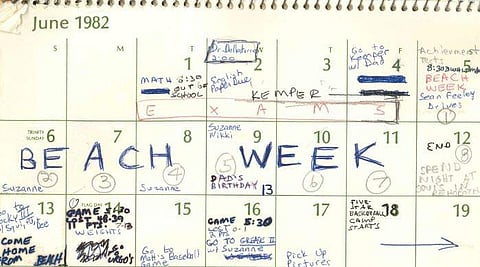 June 1982
S M T W T F S
1 2 3 4 5
MATH 8:30
OUT OF
SCHOOL
2:00
English
Paper Due
KEMPER
Go to
Kemper
w/ Dad
Achievement
Tests
8:30
BEACH
WEEK
Sean Feeley
Drives
①
E X A M S
TRINITY
SUNDAY
6 7 8 9 10 11 12
BEACH WEEK
Suzanne
Nikki
② ③ ④ ⑤ ⑥ ⑦ ⑧
Suzanne
Suzanne
DAD'S
BIRTHDAY 13
END
SPEND
NIGHT AT
13 14 15 16 17 18 19
COME
HOME
FROM
BEACH
FLAG DAY
GAME
LOST 48-39
11 PTS.
WEIGHTS
Go to
Matt's Baseball
Game
GAME 5:30
LOST
2 PTS
GO TO GREASE II
w/ Suzanne
Pick Up
Pictures
FIVE-
STAR
BASKETBALL
CAMP
STARTS